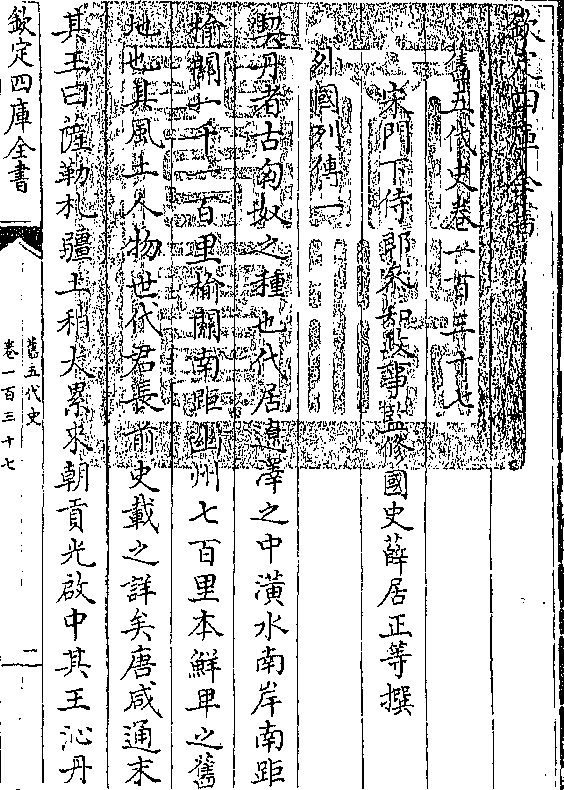 欽定四庫全書
舊五代史卷一百三十七
宋門下侍郎參知政事監修國史薛居正等撰
外國列傳一
契丹者古匈奴之種也代居遼澤之中潢水南岸南距
榆關一千一百里榆關南距幽州七百里本鮮卑之舊
地也其風土人物世代君長前史載之詳矣唐咸通末
其王曰薩勒札疆土稍大累來朝貢光啟中其王沁丹
欽定四庫全書
舊五代史
卷一百三十七
一